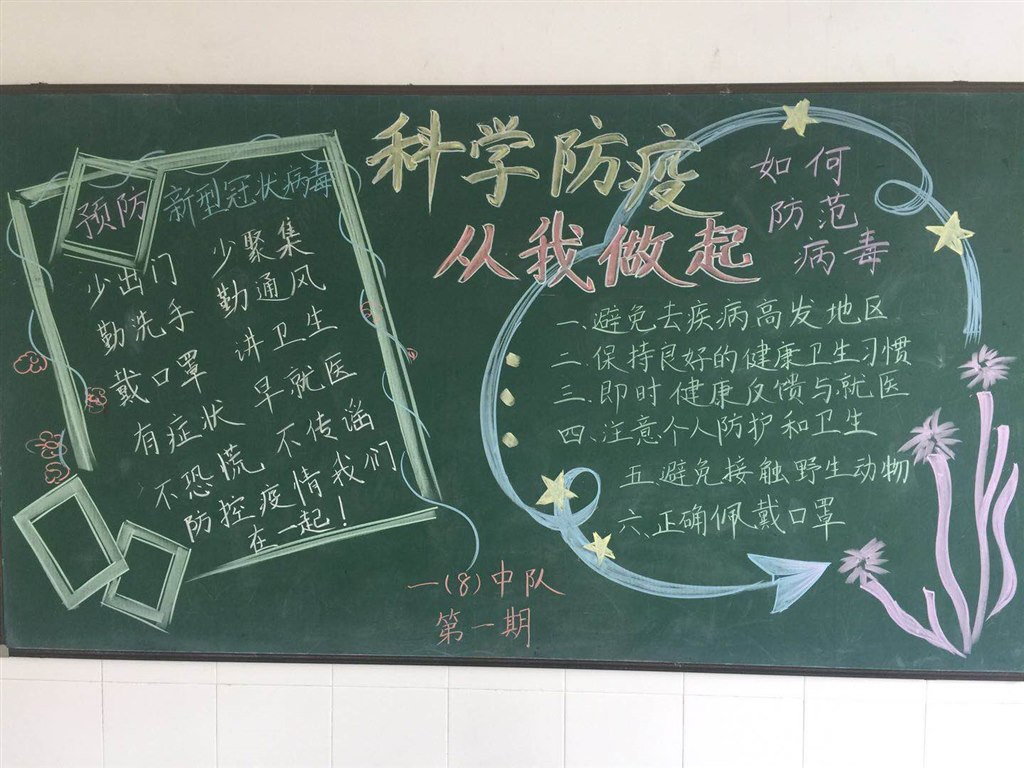 科学防疫
从我做起
预防 新型冠状病毒
少出门 少聚集
勤洗手 勤通风
戴口罩 讲卫生
有症状 早就医
不恐慌 不传谣
防控疫情我们
在一起！
如何
防范
病毒
一、避免去疾病高发地区
二、保持良好的健康卫生习惯
三、即时健康反馈与就医
四、注意个人防护和卫生
五、避免接触野生动物
六、正确佩戴口罩
一(8)中队
第一期